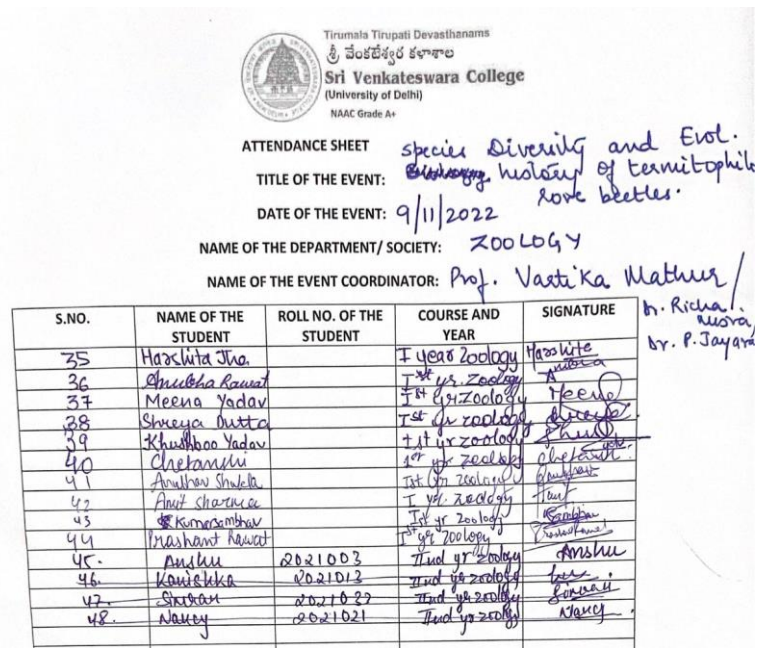 Tirumala Tirupati Devasthanams
శ్రీ వేంకటేశ్వర కళాశాల
Sri Venkateswara College
(University of Delhi)
NAAC Grade A+
ATTENDANCE SHEET
TITLE OF THE EVENT: species Diversity and Evol. history of termitophile rove beetles.
DATE OF THE EVENT: 9/11/2022
NAME OF THE DEPARTMENT/ SOCIETY: ZOOLOGY
NAME OF THE EVENT COORDINATOR: Prof. Vartika Mathur /
Dr. Richa Misra,
Dr. P. Jayara
S.NO. NAME OF THE STUDENT ROLL NO. OF THE STUDENT COURSE AND YEAR SIGNATURE
35 Harshita Jha I year Zoology Harshita
36 Anubha Rawat Ist yr. Zoology
37 Meena Yadav Ist yr Zoology Meena
38 Shreya Dutta Ist yr zoology Shreya
39 Khushboo Yadav Ist yr zoology
40 Chetanshi 1st yr zoology
41 Anubhav Shukla Ist yr zoology
42 Amit Sharma I yr. zoology
43 Kumarsambhav Ist yr zoology
44 Prashant Rawat Ist yr zoology
45. Anshu 2021003 IInd yr zoology Anshu
46. Kanishka 2021013 IInd yr zoology
47. Simran IInd yr zoology Simran
48. Nancy 2021021 IInd yr zoology Nancy